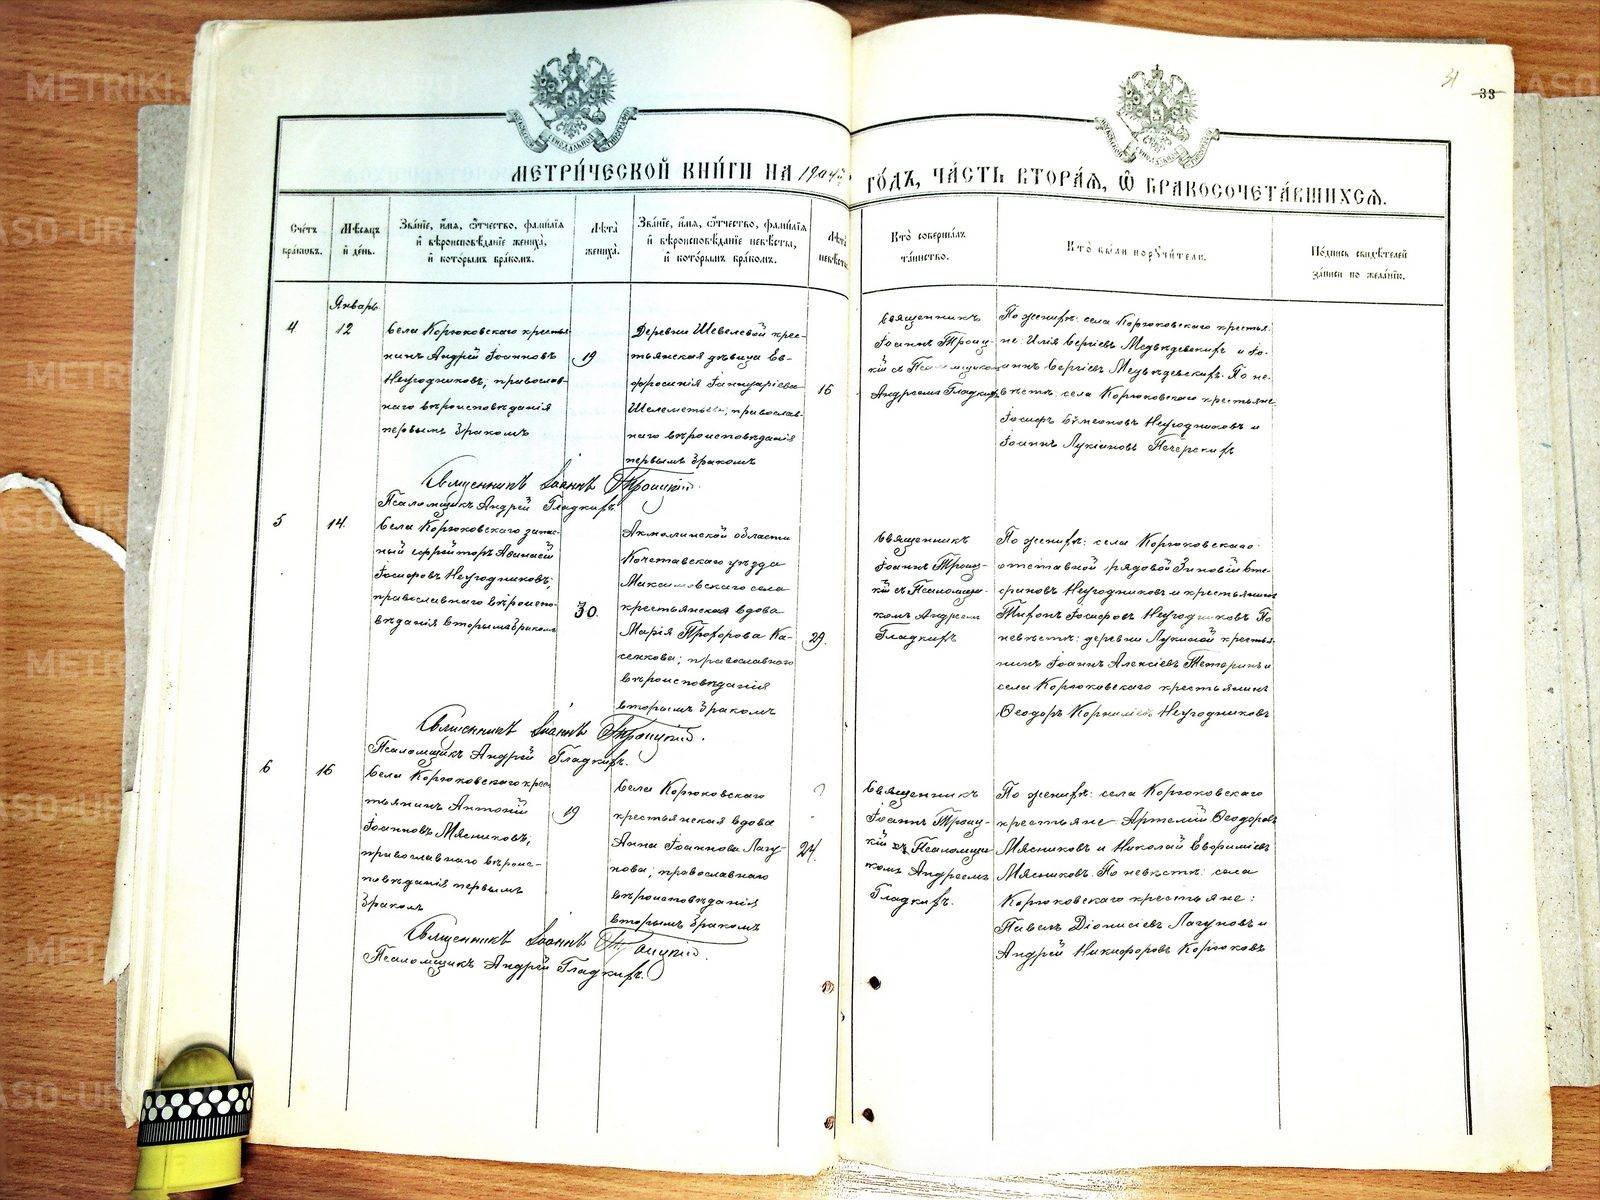 31
33
МЕТРИ́ЧЕСКОЙ КНИ́ГИ НА 1904 ГО́ДЪ, ЧА́СТЬ ВТОРА́Я, Ѡ҆ БРАКОСОЧЕТА́ВШИХСЯ.
Сче́тъ бра́ковъ.
Мѣ́сяцъ и҆ де́нь.
Зва́нїе, и҆́мя, ѻ҆́тчество, фами́лїя и҆ вѣроисповѣ́данїе жениха̀, и҆ кото́рымъ бра́комъ.
Лѣ́та жениха̀.
Зва́нїе, и҆́мя, ѻ҆́тчество, фами́лїя и҆ вѣроисповѣ́данїе невѣ́сты, и҆ кото́рымъ бра́комъ.
Лѣ́та невѣ́сты.
Кто̀ соверша́лъ та́инство.
Кто̀ бы́ли поручи́тели.
По́дпись свидѣ́телей за́писи по жела́нїю.
Январь
4
12
Села Корюковскаго кресть-
янинъ Андрей Іоанновъ
Неугодниковъ, православ-
наго вѣроисповѣданія
первымъ бракомъ
19
Деревни Шевелевой крес-
тьянская дѣвица Ев-
фросинія Іаннуаріева
православ-
наго вѣроисповѣданія
первымъ бракомъ
16
Священникъ
Іоаннъ Троиц-
кій съ Псаломщикомъ
Андреемъ Гладкихъ
По женихѣ: села Корюковскаго кресть-
не: Илія Сергіевъ Медвѣдевскихъ и Іо-
аннъ Сергіевъ Медвѣдевскихъ. По не-
вѣстѣ: села Корюковскаго крестьяне
Іосифъ Сѵмеоновъ Неугодниковъ и
Іоаннъ Лукіановъ Печерскихъ
Священникъ Іоаннъ Троицкій.
Псаломщикъ Андрей Гладкихъ.
5
14.
Села Корюковскаго запас-
ный ефрейторъ Аѳанасій
Іосифовъ Неугодниковъ,
православнаго вѣроиспо-
вѣданія вторымъ бракомъ
30.
Акмолинской области
Кокчетавскаго уѣзда
Максимовскаго села
крестьянская вдова
Марія Трофорова Ка-
сенкова; православнаго
вѣроисповѣданія
вторымъ бракомъ
29.
Священникъ
Іоаннъ Троиц-
кій съ Псаломщи-
комъ Андреем
Гладкихъ
По женихѣ: села Корюковскаго
отставной рядовой Зиновій Сте-
фановъ Неугодниковъ и крестьянинъ
Тихонъ Іосифовъ Неугодниковъ По
невѣстѣ: деревни Лукиной крестья-
нинъ Іоаннъ Алексіевъ Тетеринъ и
села Корюковскаго крестьянинъ
Ѳеодоръ Корниліевъ Неугодниковъ
Священникъ Іоаннъ Троицкій.
Псаломщикъ Андрей Гладкихъ.
6
16
Села Корюковскаго крес-
тьянинъ Антоній
Іоанновъ Мясниковъ,
православнаго вѣроис-
повѣданія первымъ
бракомъ
19
Села Корюковскаго
крестьянская вдова
Анна Іоаннова Лагу-
нова; православнаго
вѣроисповѣданія
вторымъ бракомъ
?
24.
Священникъ
Іоаннъ Троиц-
кій съ Псаломщи-
комъ Андреемъ
Гладкихъ.
По женихѣ: села Корюковскаго
крестьяне Артемій Ѳеодоровъ
Мясниковъ и Николай Евфиміевъ
Мясниковъ. По невѣстѣ: села
Корюковскаго крестьяне:
Павелъ Діонисіевъ Лагуновъ и
Андрей Никифоровъ Корюковъ
Священникъ Іоаннъ Троицкій.
Псаломщикъ Андрей Гладкихъ.